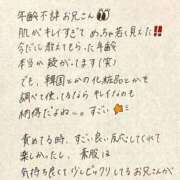 年齢不詳お兄さん👀
肌がキレイすぎて めっちゃ若く見えた‼
今だし教えてもらった年齢
本当か疑がってます(笑)
でも、韓国とかの化粧品とかも
調べて使ってるならキレイなのも
納得だよねー。すごい⭐
責めてる時、すごい良い反応してくれて
楽しかったし、素股は
気持ち良くてリピしてるお兄さんが